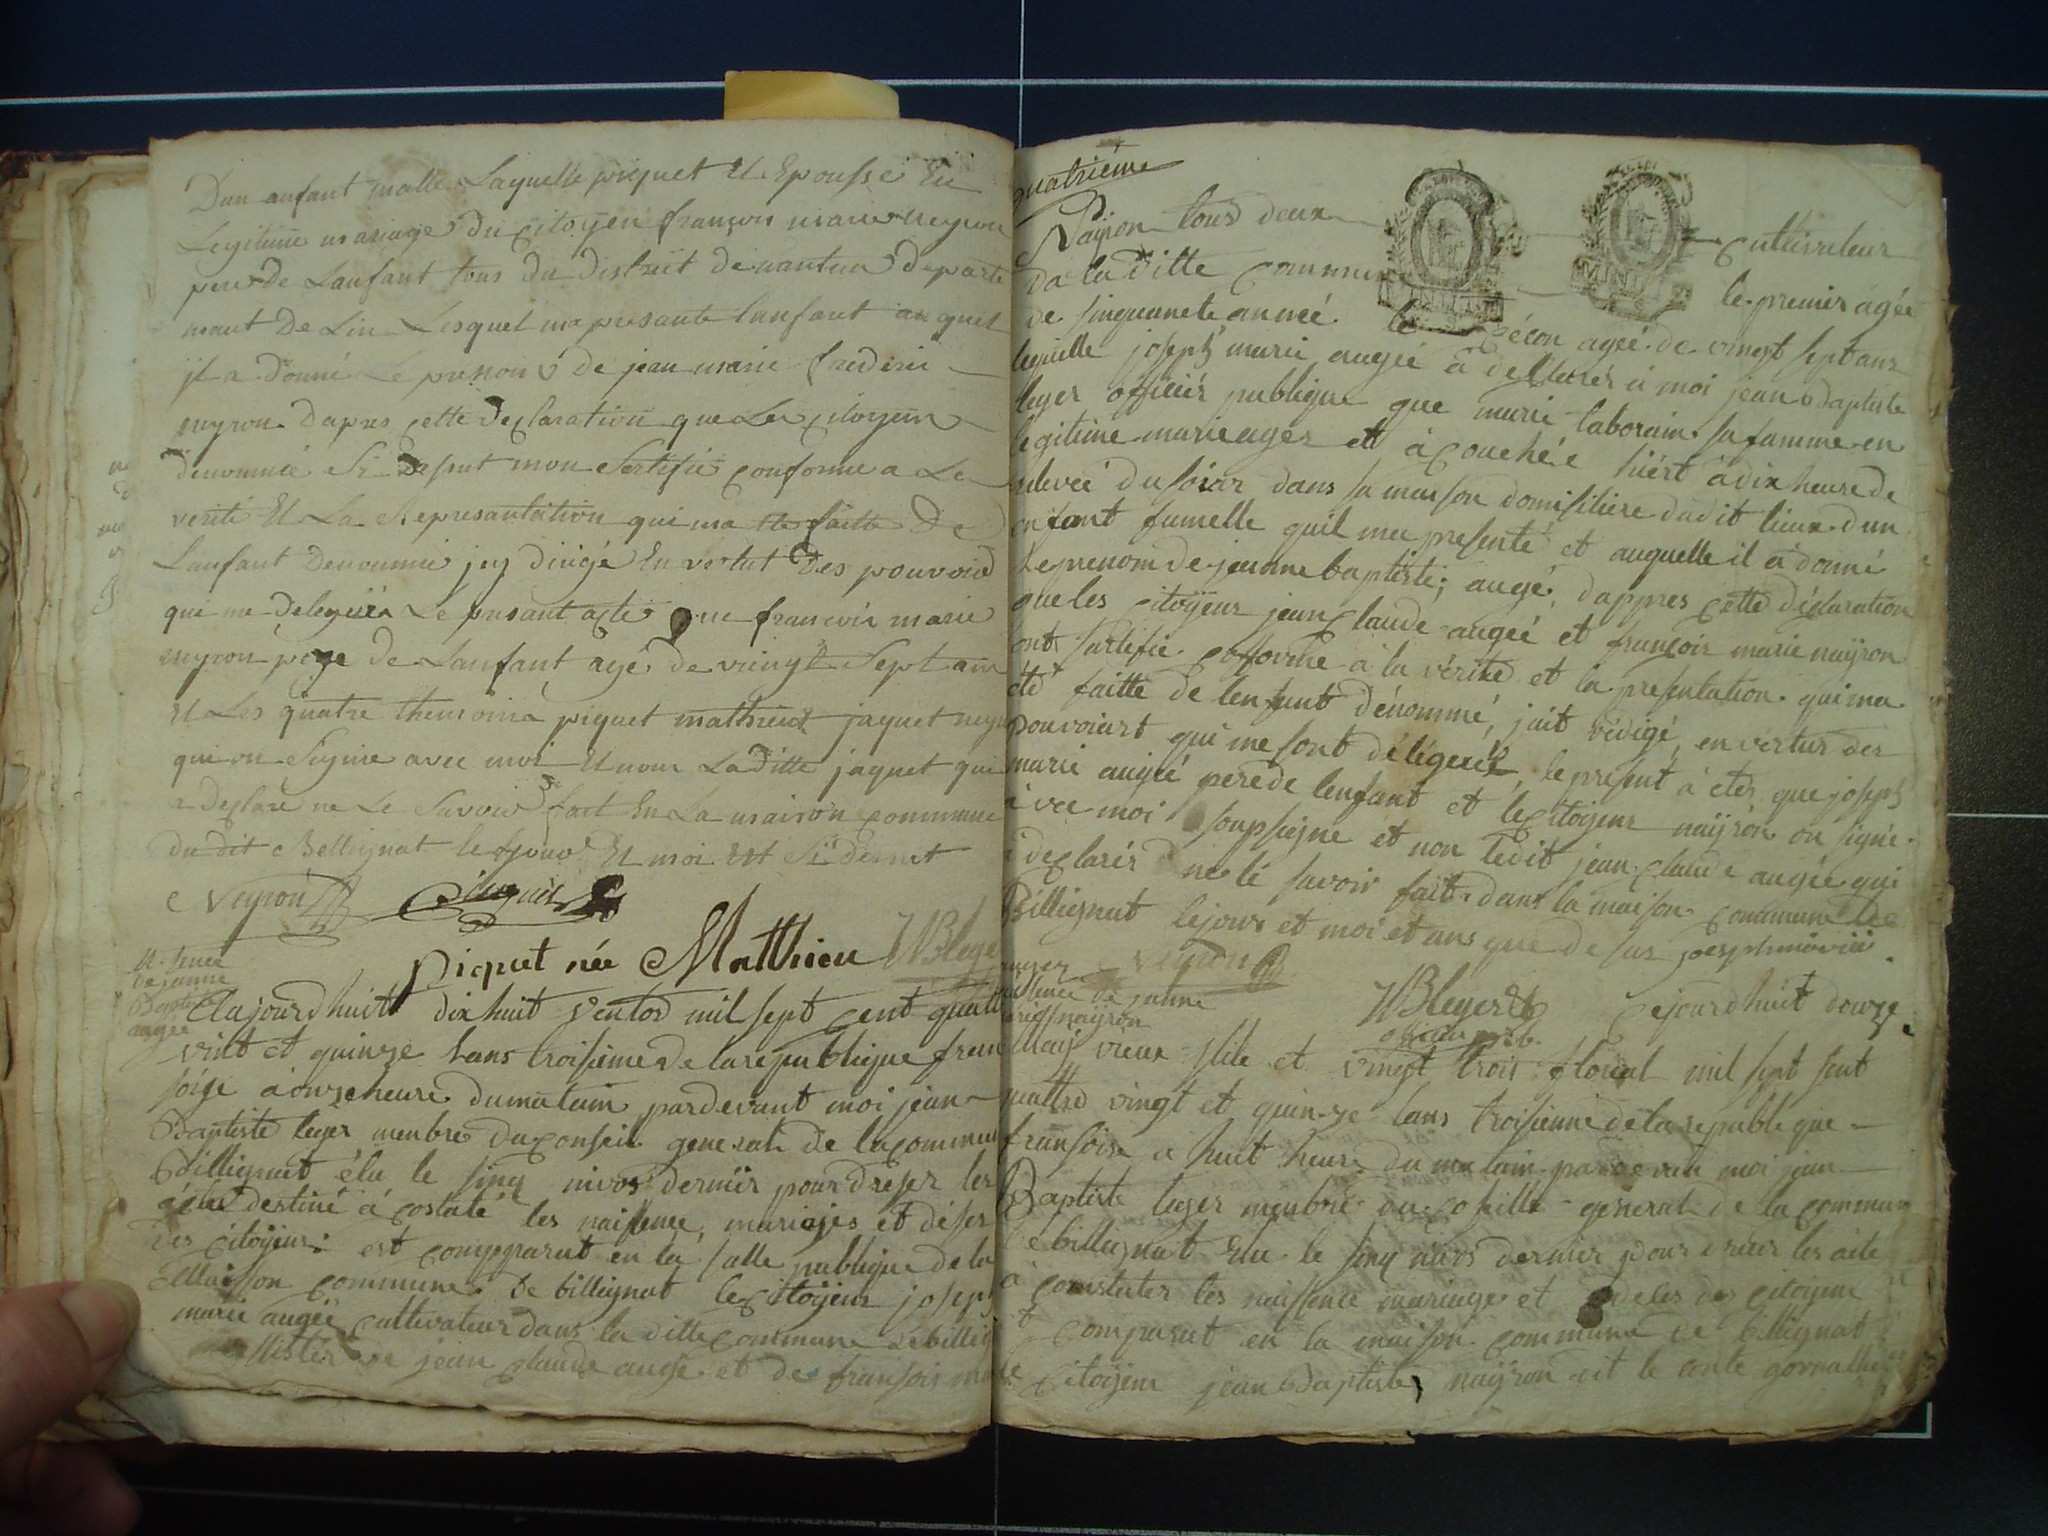 Dun anfant malle Laquelle piquet Et Epousse En
Legitime mariage du citoyen françois marie neyron
pere de Lanfant tous du distrüt de nantua departe
mant de Lin Lesquel ma presante lanfant auquel
jl a donné Le prenoni de jean marie
neyron dapres cette declaration que Les citoyens
denommé mon Sertifie conforme a La
verité Et La Representation qui ma ete faitte De
Lanfant denommé jey dirigé En vertut Des pouvoird
qui me delegués Le presant acte que francois marie
neyron pere de Lanfant agé de vieingt Sept ans
Et Les quatre themoins piquet mathieux jaquet neyr
qui on Signie avec moi Et non La ditte jaquet qui
a declaré ne Le Savoir fait En La maison commune
du dit Bellignat le jour Et moi Est Si desut
Neyron
Piquet née Matthieu JBlege
de janne
Baptiste
augée
Aujourdhuit dix huit Ventos mil sept cent quatt
vint et quinze lans troisieme de la republique fran
soise à onze heure du matain pardevant moi jean
Baptiste leger menbre du conseil general de la commun
Billignat élu le sinq nivos dernier pour dreser les
actes destiné à costaté les naisence, mariajes et déser
des citoÿens est comparut en la salle publique de la
Maison commune de billignat le citoÿens joseph
marie augée cultivateur dans la ditte commune de billig
de jean claude auge et de fransois marie
quatriéme
Naÿron tous deux cultivateur
da la ditte commune le premier agée
de sinquante anneé le secon ageé de vingt sept ans
lequelle joseph marie augée à dellarés à moi jean Baptiste
leger officiér publique que marie laborain sa famme en
legitime marieages et à couchée hiért à dix heure de
relevée du soiar dans sa maison domisiliere dudit lieux dun
enfant fumelle quil mea presenté et auquelle il à donné
Le prenom de jeanne baptiste; augé, dappres cette déclaration
que les citoÿens jean claude augeé et françoir marie naÿron
ont sartifié conforme à la vérité et la presentation qui ma
été faitte de lenfant dénommé, jait rédigé en vertus des
pouvoiart qui me sont délégueés, le present à ctes que joseph
marie augeé pere de lenfant et le citoÿens naÿron on signé
avec moi soupsigne et non ledit jean claude augée qui
a declarés ne lé savoir fait dans la maison commune de
Billignat le jour et moi et ans que de sus joesph marie
auger Neyron
naisence de janne
marie naÿron
JBleger
officier pub.
Cejourdhuit douze
Maÿ vieux stile et vingt trois floreal mil sept sent
quattre vingt et quinze lans troisieme de la republique
fransoise à huit heure du matain pardevan moi jean
Baptiste leger menbre du coseille general de la commun
de billignat élu le sinq nivos dernier pour les acte
à constater les naissence mariage et deces des citoÿens
et comparut en la maison commune de billignat
citoÿens jean Baptiste naÿron dit le conte